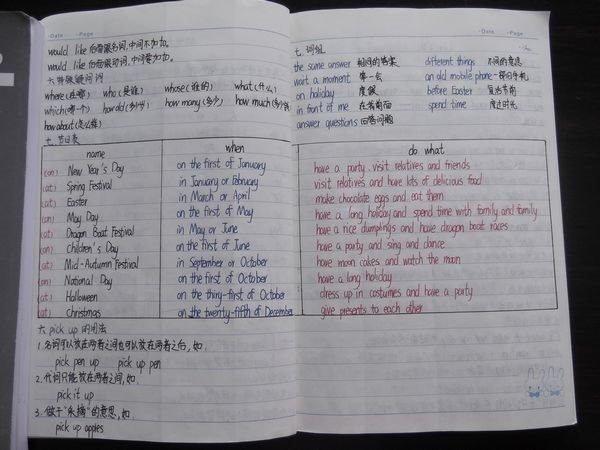 ·Date ·Page
would like 后面跟名词,中间不加to。
would like 后面跟动词,中间要加to。
六.特殊疑问词
where(在哪) who(是谁) whose(谁的) what(什么)
which(哪一个) how old(多少岁) how many(多少) how much(多少钱)
how about(怎么样)
七.节日表
name when
(on) New Year's Day on the first of January
(at) Spring Festival in January or February
(at) Easter in March or April
(on) May Day on the first of May
(at) Dragon Boat Festival in May or June
(on) Children's Day on the first of June
(at) Mid-Autumn Festival in September or October
(on) National Day on the first of October
(at) Halloween on the thiry-first of October
(at) Christmas on the twenty-fifth of December
六 pick up 的用法
1.名词可以放在两者之间也可以放在两者之后,如.
pick pen up pick up pen
2.代词只能放在两者之间,如.
pick it up
3.做于"采摘"的意思,如.
pick up apples
·Date ·Page
七.词组
the same answer 相同的答案 different things 不同的意思
wart a moment 等一会 an old mobile phone 一部旧手机
on holiday 度假 before Easter 复活节前
in front of me 在我前面 spend time 度过时光
answer questions 回答问题
do what
have a party .visit relatives and friends
visit relatives and have lots of delicious food
make chocolate eggs and eat them
have a long holiday and spend time with family and family
have a rice dumplings and have dragon boat races
have a party and sing and dance
have moon cakes and watch the moon
have a long holiday
dress up in costumes and have a party
give presents to each other